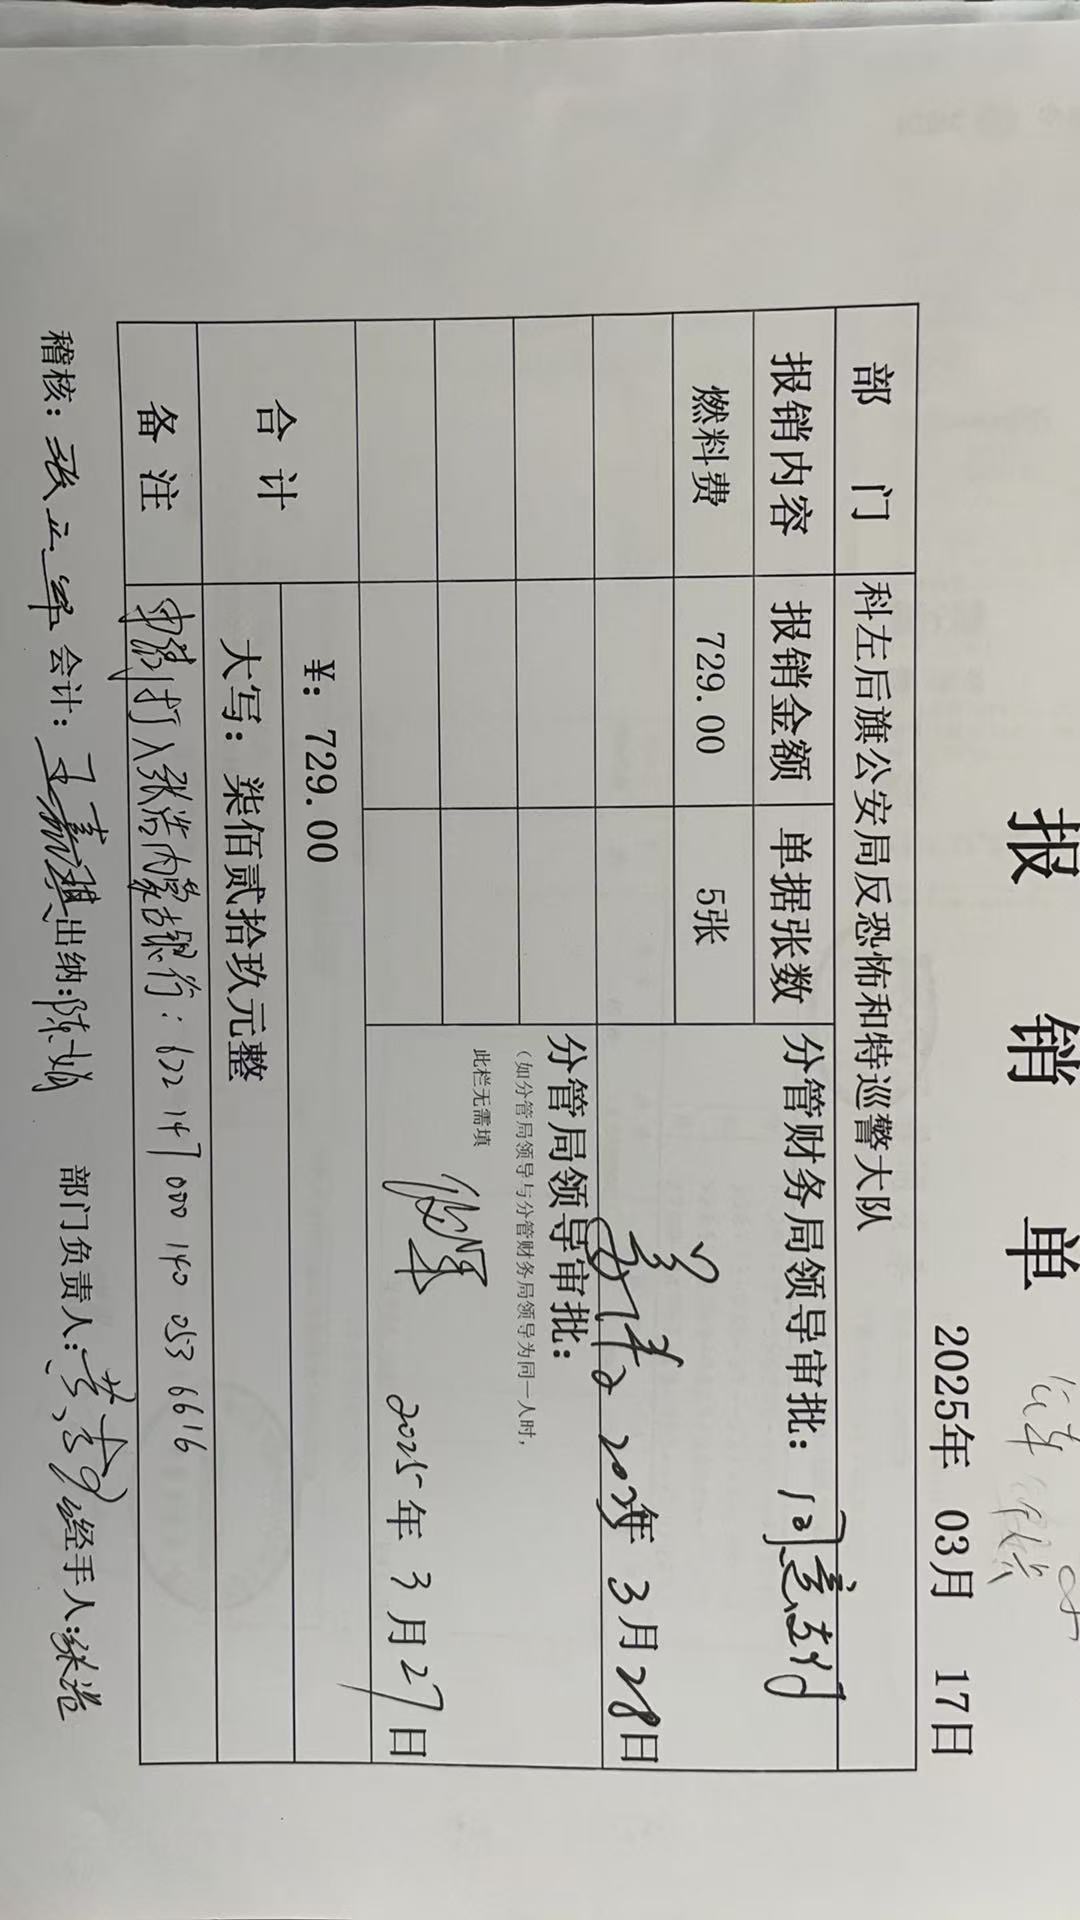 报 销 单
2025年 03月 17日
部 门 科左后旗公安局反恐怖和特巡警大队
报销内容 报销金额 单据张数 分管财务局领导审批：同意支付
燃料费 729.00 5张
2025年 3月 28日
分管局领导审批：
（如分管局领导与分管财务局领导为同一人时，
此栏无需填
2025年 3月 27日
合 计 ¥: 729.00
大写： 柒佰贰拾玖元整
备 注 申请打入张浩内蒙古银行：622147 000 140 053 6616
稽核：张 会计：王嘉祺 出纳：陈娟 部门负责人： 经手人：张浩